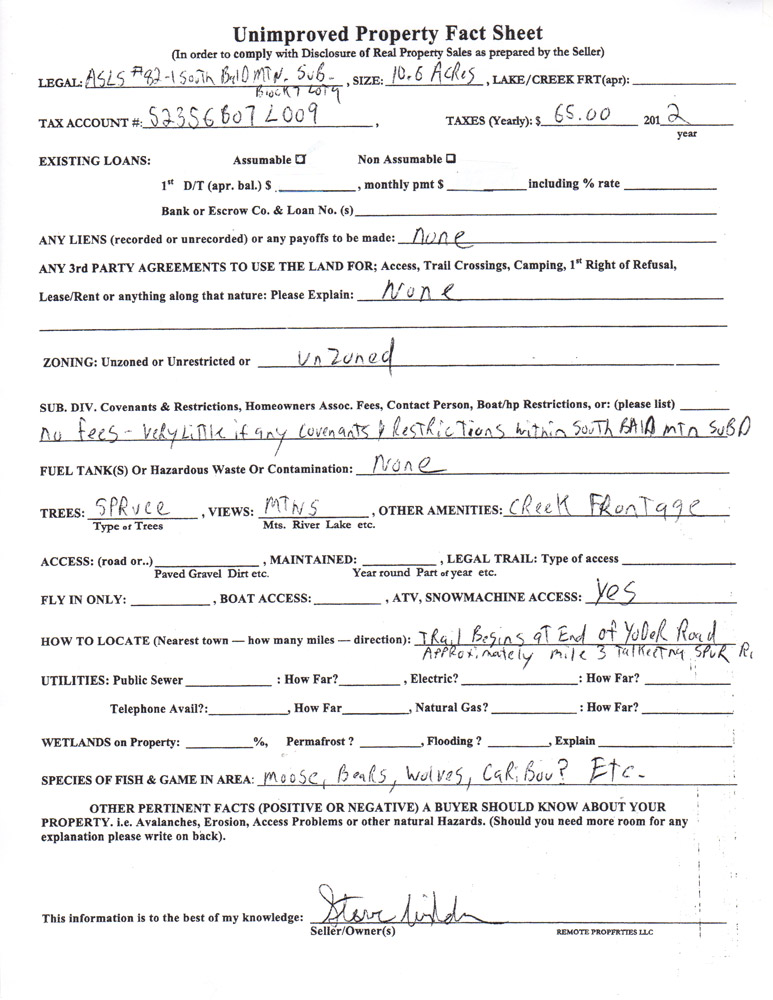 Unimproved Property Fact Sheet
(In order to comply with Disclosure of Real Property Sales as prepared by the Seller)
LEGAL: ASLS #82-1 South Bald MTN. SUB- , SIZE: 10.6 Acres , LAKE/CREEK FRT(apr):
Block 7 LOT 9
TAX ACCOUNT #: 52356B07L009 , TAXES (Yearly): $ 65.00 2012
year
EXISTING LOANS: Assumable ☐ Non Assumable ☐
1st D/T (apr. bal.) $ , monthly pmt $ including % rate
Bank or Escrow Co. & Loan No. (s)
ANY LIENS (recorded or unrecorded) or any payoffs to be made: None
ANY 3rd PARTY AGREEMENTS TO USE THE LAND FOR; Access, Trail Crossings, Camping, 1st Right of Refusal,
Lease/Rent or anything along that nature: Please Explain: None
ZONING: Unzoned or Unrestricted or UnZoned
SUB. DIV. Covenants & Restrictions, Homeowners Assoc. Fees, Contact Person, Boat/hp Restrictions, or: (please list)
no fees - very little if any covenants & RESTRICTIONS within SOUTH BALD MTN SUBD
FUEL TANK(S) Or Hazardous Waste Or Contamination: None
TREES: SPRUCE , VIEWS: MTNS , OTHER AMENITIES: CReeK FRonTage
Type of Trees Mts. River Lake etc.
ACCESS: (road or..) , MAINTAINED: , LEGAL TRAIL: Type of access
Paved Gravel Dirt etc. Year round Part of year etc.
FLY IN ONLY: , BOAT ACCESS: , ATV, SNOWMACHINE ACCESS: Yes
HOW TO LOCATE (Nearest town — how many miles — direction): TRail Begins at End of YodeR Road
APPROximately mile 3 Talkeetna SPUR R
UTILITIES: Public Sewer : How Far? , Electric? : How Far?
Telephone Avail?: , How Far , Natural Gas? : How Far?
WETLANDS on Property: %, Permafrost ? , Flooding ? , Explain
SPECIES OF FISH & GAME IN AREA: Moose, Bears, Wolves, CaRiBou? Etc-
OTHER PERTINENT FACTS (POSITIVE OR NEGATIVE) A BUYER SHOULD KNOW ABOUT YOUR
PROPERTY. i.e. Avalanches, Erosion, Access Problems or other natural Hazards. (Should you need more room for any
explanation please write on back).
This information is to the best of my knowledge: Steve
Seller/Owner(s) REMOTE PROPERTIES LLC